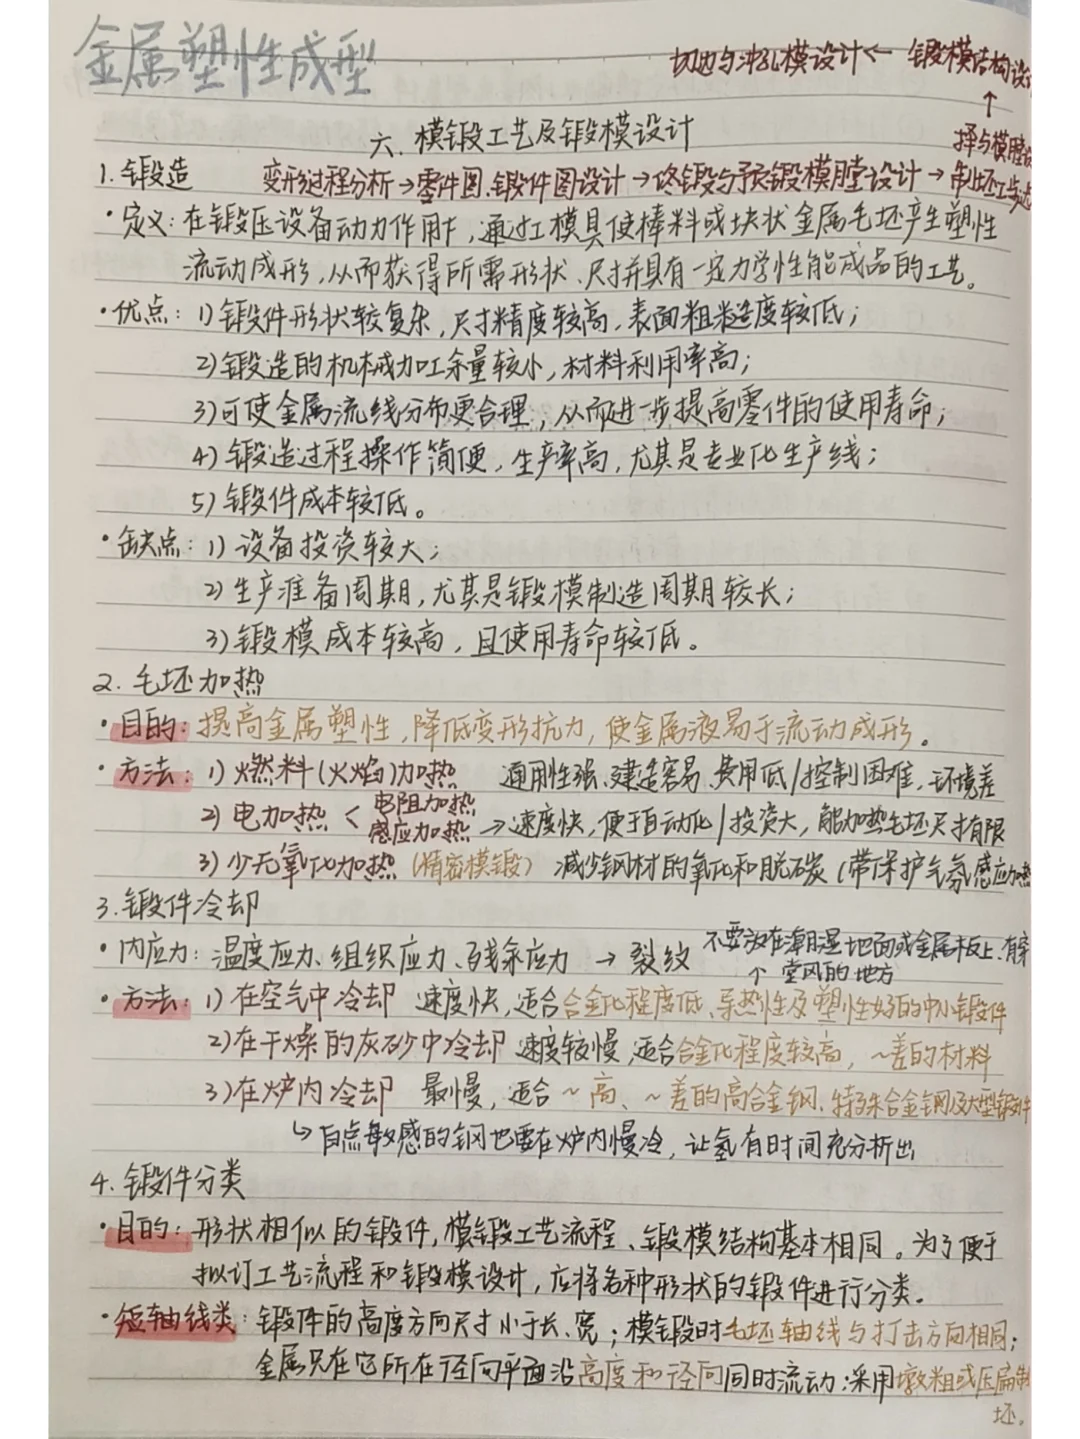 金属塑性成型
切边与冲孔模设计← 锻模结构设计
↑
六.模锻工艺及锻模设计
择与模膛
1.锻造 变形过程分析→零件图.锻件图设计→终锻与预锻模膛设计→制坯工步
·定义:在锻压设备动力作用下,通过工模具使棒料或块状金属毛坯产生塑性
流动成形,从而获得所需形状、尺寸并具有一定力学性能成品的工艺。
·优点:1)锻件形状较复杂,尺寸精度较高,表面粗糙度较低;
2)锻造的机械加工余量较小,材料利用率高;
3)可使金属流线分布更合理,从而进一步提高零件的使用寿命;
4)锻造过程操作简便,生产率高,尤其是专业化生产线;
5)锻件成本较低。
·缺点:1)设备投资较大;
2)生产准备周期,尤其是锻模制造周期较长;
3)锻模成本较高,且使用寿命较低。
2.毛坯加热
·目的:提高金属塑性,降低变形抗力,使金属液易于流动成形。
·方法:1)燃料(火焰)加热 通用性强、建造容易、费用低/控制困难,环境差
2)电加热< 电阻加热
感应加热 →速度快,便于自动化/投资大,能加热毛坯尺寸有限
3)少无氧化加热(精密模锻) 减少钢材的氧化和脱碳(带保护气氛感应加热
3.锻件冷却
·内应力:温度应力、组织应力、残余应力 →裂纹 不要放在潮湿地面或金属板上、有穿
↑ 堂风的地方
·方法:1)在空气中冷却 速度快,适合合金化程度低、导热性及塑性好的中小锻件
2)在干燥的灰砂中冷却 速度较慢,适合合金化程度较高,~差的材料
3)在炉内冷却 最慢,适合~高、~差的高合金钢、特殊合金钢及大型锻件
↳白点敏感的钢也要在炉内慢冷,让氢有时间充分析出
4.锻件分类
·目的:形状相似的锻件,模锻工艺流程、锻模结构基本相同。为了便于
拟订工艺流程和锻模设计,应将各种形状的锻件进行分类。
·短轴线类:锻件的高度方向尺寸小于长、宽;模锻时毛坯轴线与打击方向相同;
金属只在它所在径向平面沿高度和径向同时流动;采用墩粗或压扁制
坯。